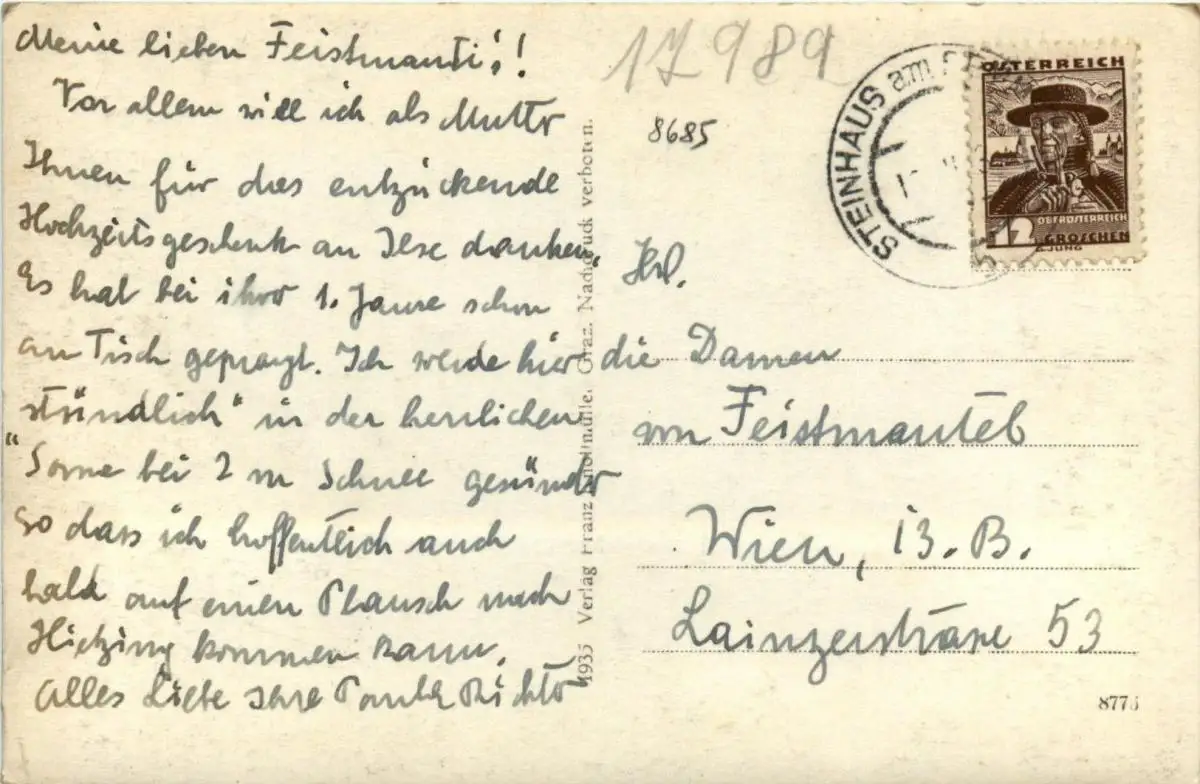 Meine lieben Feistmanti's!
Vor allem will ich als Mutter
Ihnen für das entzückende
Hochzeitsgeschenk an Ilse danken.
Es hat bei ihrer 1. Jause schon
am Tisch geprangt. Ich werde hier
"stündlich" in der herrlichen
Sonne bei 2 m Schnee gesünder
so dass ich hoffentlich auch
bald auf einen Plausch nach
Hietzing kommen kann.
Alles Liebe Ihre Paula Richter
1935 Verlag Franz Knollmüller, Graz. Nachdruck verboten.
17989
8685
STEINHAUS am
ÖSTERREICH
OBERÖSTERREICH
12 GROSCHEN
JUNG
Hd.
die Damen
von Feistmantel
Wien, 13. B.
Lainzerstrasse 53
8775